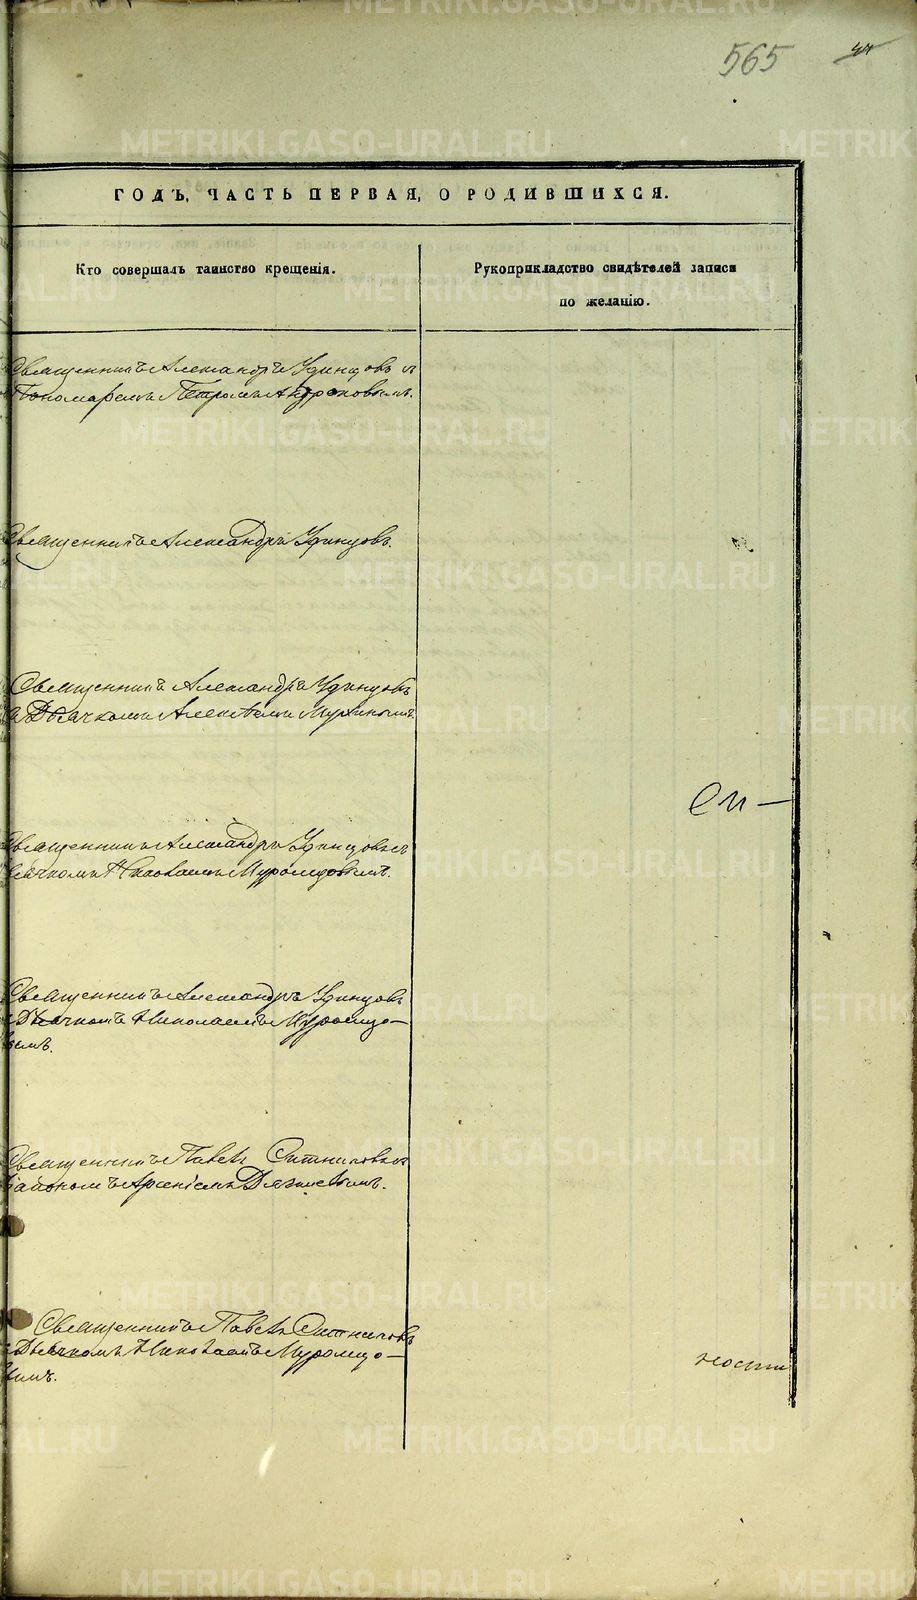 565
ГОДЪ, ЧАСТЬ ПЕРВАЯ, О РОДИВШИХСЯ.
Кто совершалъ таинство крещенія.
Рукоприкладство свидѣтелей записи
по желанію.
Священникъ Александръ Удинцовъ и
Пономаремъ Петромъ
Священникъ Александръ Удинцовъ.
Священникъ Александръ Удинцовъ
и Дьячкомъ Алексѣемъ
Священникъ Александръ Удинцовъ съ
Дьячкомъ Николаемъ Муромцовымъ.
Священникъ Александръ Удинцовъ
съ Дьячкомъ Николаемъ Муромцо-
вымъ.
Священникъ Павелъ Ситниковъ съ
Діакономъ Арсеніемъ
Священникъ Павелъ Ситниковъ
съ Дьячкомъ Николаемъ Муромцо-
вымъ.
ности
METRIKI.GASO-URAL.RU